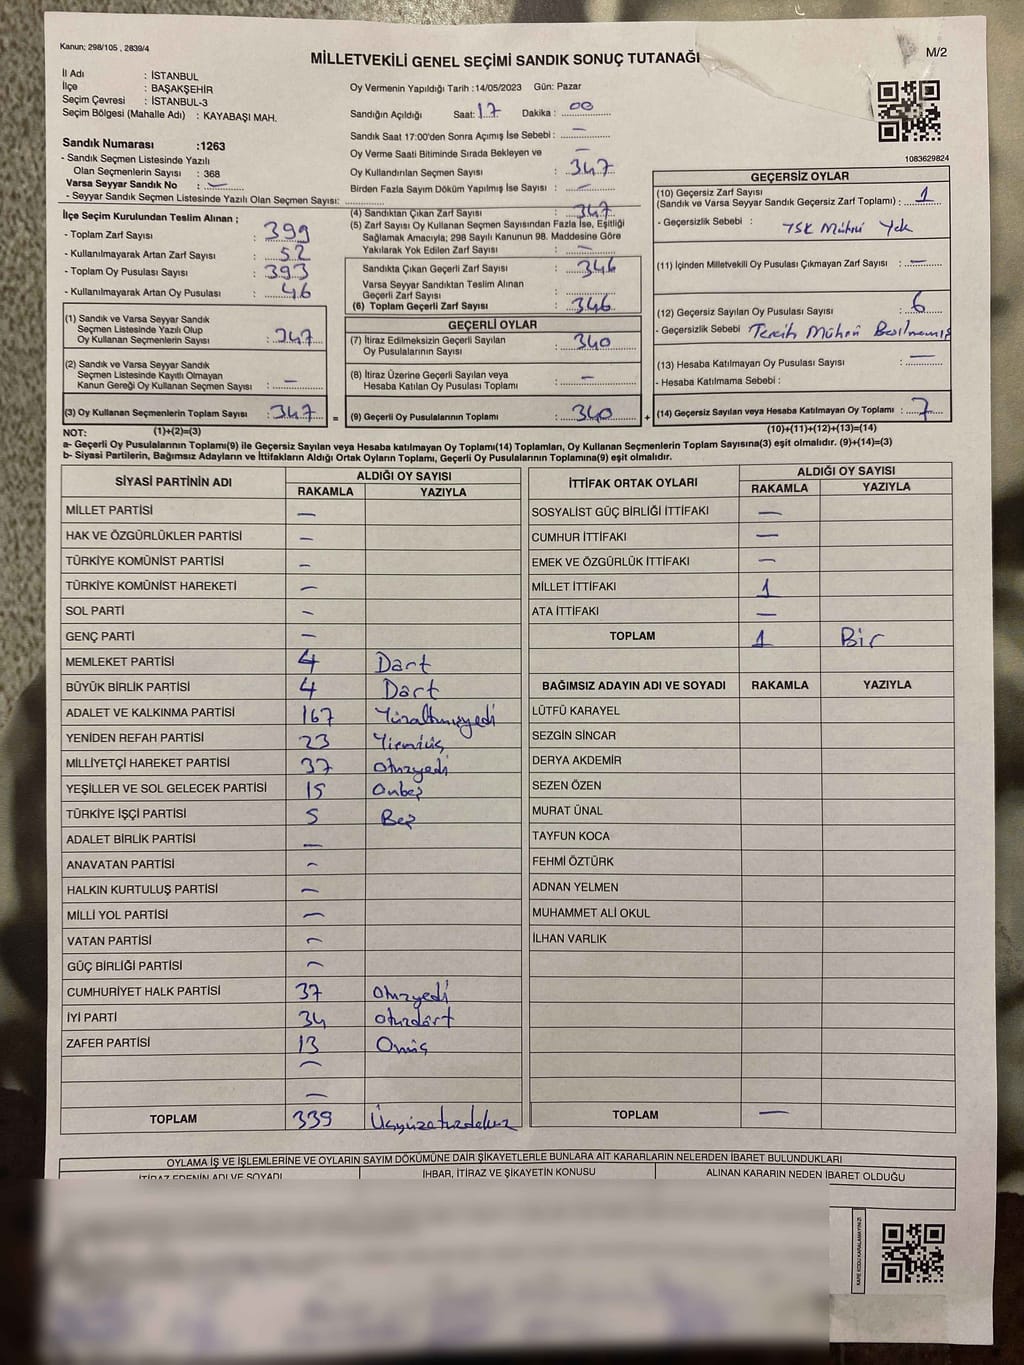 Kanun: 298/105 , 2839/4
MİLLETVEKİLİ GENEL SEÇİMİ SANDIK SONUÇ TUTANAĞI
M/2
İl Adı : İSTANBUL
İlçe : BAŞAKŞEHİR
Seçim Çevresi : İSTANBUL-3
Seçim Bölgesi (Mahalle Adı) : KAYABAŞI MAH.
Sandık Numarası :1263
- Sandık Seçmen Listesinde Yazılı
Olan Seçmenlerin Sayısı : 368
Varsa Seyyar Sandık No : —
- Seyyar Sandık Seçmen Listesinde Yazılı Olan Seçmen Sayısı:
Oy Vermenin Yapıldığı Tarih :14/05/2023 Gün: Pazar
Sandığın Açıldığı Saat: 17 Dakika : 00
Sandık Saat 17:00'den Sonra Açımış İse Sebebi : —
Oy Verme Saati Bitiminde Sırada Bekleyen ve —
Oy Kullandırılan Seçmen Sayısı : 347
Birden Fazla Sayım Döküm Yapılmış İse Sayısı : —
1083629824
İlçe Seçim Kurulundan Teslim Alınan ;
- Toplam Zarf Sayısı : 399
- Kullanılmayarak Artan Zarf Sayısı : 52
- Toplam Oy Pusulası Sayısı : 393
- Kullanılmayarak Artan Oy Pusulası : 46
(1) Sandık ve Varsa Seyyar Sandık
Seçmen Listesinde Yazılı Olup
Oy Kullanan Seçmenlerin Sayısı : 347
(2) Sandık ve Varsa Seyyar Sandık
Seçmen Listesinde Kayıtlı Olmayan
Kanun Gereği Oy Kullanan Seçmen Sayısı : —
(3) Oy Kullanan Seçmenlerin Toplam Sayısı : 347
(4) Sandıktan Çıkan Zarf Sayısı : 347
(5) Zarf Sayısı Oy Kullanan Seçmen Sayısından Fazla İse, Eşitliği
Sağlamak Amacıyla; 298 Sayılı Kanunun 98. Maddesine Göre
Yakılarak Yok Edilen Zarf Sayısı : —
Sandıkta Çıkan Geçerli Zarf Sayısı : 346
Varsa Seyyar Sandıktan Teslim Alınan
Geçerli Zarf Sayısı :
(6) Toplam Geçerli Zarf Sayısı : 346
GEÇERLİ OYLAR
(7) İtiraz Edilmeksizin Geçerli Sayılan
Oy Pusulalarının Sayısı : 340
(8) İtiraz Üzerine Geçerli Sayılan veya
Hesaba Katılan Oy Pusulası Toplamı : —
= (9) Geçerli Oy Pusulalarının Toplamı : 340 +
GEÇERSİZ OYLAR
(10) Geçersiz Zarf Sayısı
(Sandık ve Varsa Seyyar Sandık Geçersiz Zarf Toplamı) : 1
- Geçersizlik Sebebi : YSK Mührü Yok
(11) İçinden Milletvekili Oy Pusulası Çıkmayan Zarf Sayısı : —
(12) Geçersiz Sayılan Oy Pusulası Sayısı : 6
- Geçersizlik Sebebi : Tercih Mührü Basılmamış
(13) Hesaba Katılmayan Oy Pusulası Sayısı : —
- Hesaba Katılmama Sebebi :
(14) Geçersiz Sayılan veya Hesaba Katılmayan Oy Toplamı : 7
NOT: (1)+(2)=(3)
(10)+(11)+(12)+(13)=(14)
a- Geçerli Oy Pusulalarının Toplamı(9) ile Geçersiz Sayılan veya Hesaba katılmayan Oy Toplamı(14) Toplamları, Oy Kullanan Seçmenlerin Toplam Sayısına(3) eşit olmalıdır. (9)+(14)=(3)
b- Siyasi Partilerin, Bağımsız Adayların ve İttifakların Aldığı Ortak Oyların Toplamı, Geçerli Oy Pusulalarının Toplamına(9) eşit olmalıdır.
SİYASİ PARTİNİN ADI ALDIĞI OY SAYISI
RAKAMLA YAZIYLA
MİLLET PARTİSİ —
HAK VE ÖZGÜRLÜKLER PARTİSİ —
TÜRKİYE KOMÜNİST PARTİSİ —
TÜRKİYE KOMÜNİST HAREKETİ —
SOL PARTİ —
GENÇ PARTİ —
MEMLEKET PARTİSİ 4 Dört
BÜYÜK BİRLİK PARTİSİ 4 Dört
ADALET VE KALKINMA PARTİSİ 167 Yüzaltmışyedi
YENİDEN REFAH PARTİSİ 23 Yirmiüç
MİLLİYETÇİ HAREKET PARTİSİ 37 Otuzyedi
YEŞİLLER VE SOL GELECEK PARTİSİ 15 Onbeş
TÜRKİYE İŞÇİ PARTİSİ 5 Beş
ADALET BİRLİK PARTİSİ —
ANAVATAN PARTİSİ —
HALKIN KURTULUŞ PARTİSİ —
MİLLİ YOL PARTİSİ —
VATAN PARTİSİ —
GÜÇ BİRLİĞİ PARTİSİ —
CUMHURİYET HALK PARTİSİ 37 Otuzyedi
İYİ PARTİ 34 Otuzdört
ZAFER PARTİSİ 13 Onüç
—
—
TOPLAM 339 Üçyüzotuzdokuz
İTTİFAK ORTAK OYLARI ALDIĞI OY SAYISI
RAKAMLA YAZIYLA
SOSYALİST GÜÇ BİRLİĞİ İTTİFAKI —
CUMHUR İTTİFAKI —
EMEK VE ÖZGÜRLÜK İTTİFAKI —
MİLLET İTTİFAKI 1
ATA İTTİFAKI —
TOPLAM 1 Bir
BAĞIMSIZ ADAYIN ADI VE SOYADI RAKAMLA YAZIYLA
LÜTFÜ KARAYEL
SEZGİN SİNCAR
DERYA AKDEMİR
SEZEN ÖZEN
MURAT ÜNAL
TAYFUN KOCA
FEHMİ ÖZTÜRK
ADNAN YELMEN
MUHAMMET ALİ OKUL
İLHAN VARLIK
TOPLAM —
OYLAMA İŞ VE İŞLEMLERİNE VE OYLARIN SAYIM DÖKÜMÜNE DAİR ŞİKAYETLERLE BUNLARA AİT KARARLARIN NELERDEN İBARET BULUNDUKLARI
İTİRAZ EDENİN ADI VE SOYADI İHBAR, İTİRAZ VE ŞİKAYETİN KONUSU ALINAN KARARIN NEDEN İBARET OLDUĞU
KARE KODU KARALAMAYINIZ!